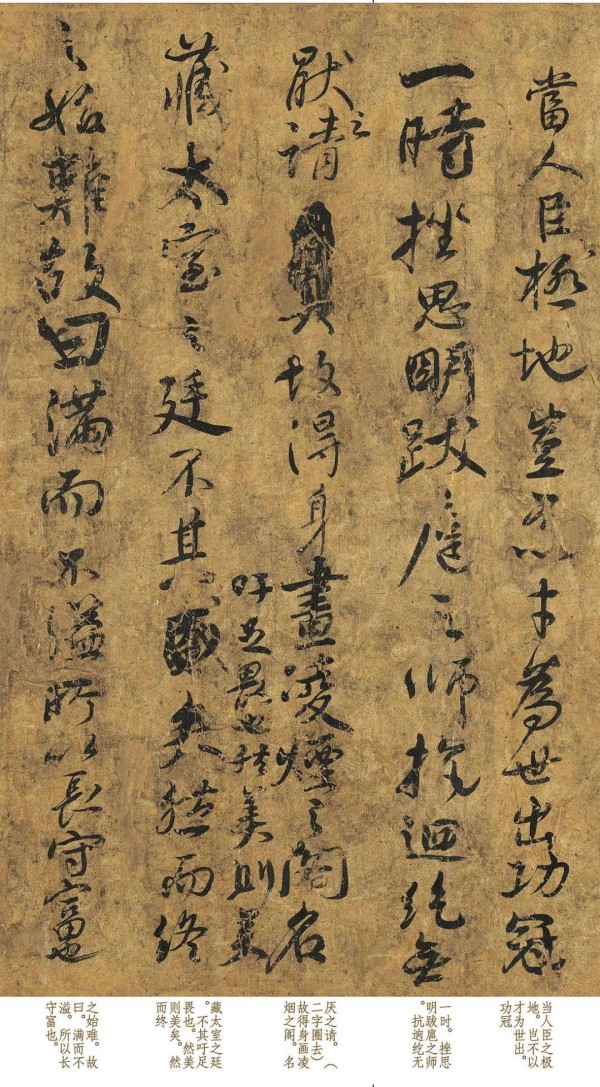 當人臣極地豈不以才為世出功冠
一時挫思明跋扈之師抗迴紇無
厭之請故得身畫凌煙之閣名
吁足畏也然美則美
藏太室之廷不其矣然而終
之始難故曰滿而不溢所以長守富也
当人臣之极
地。岂不以
才为世出。
功冠
一时。挫思
明跋扈之师
。抗迥纥无
厌之请。（
二字圈去）
故得身画凌
烟之阁。名
藏太室之廷
。不其吁足
畏也。然美
则美矣。然
而终
之始难。故
曰。满而不
溢。所以长
守富也。